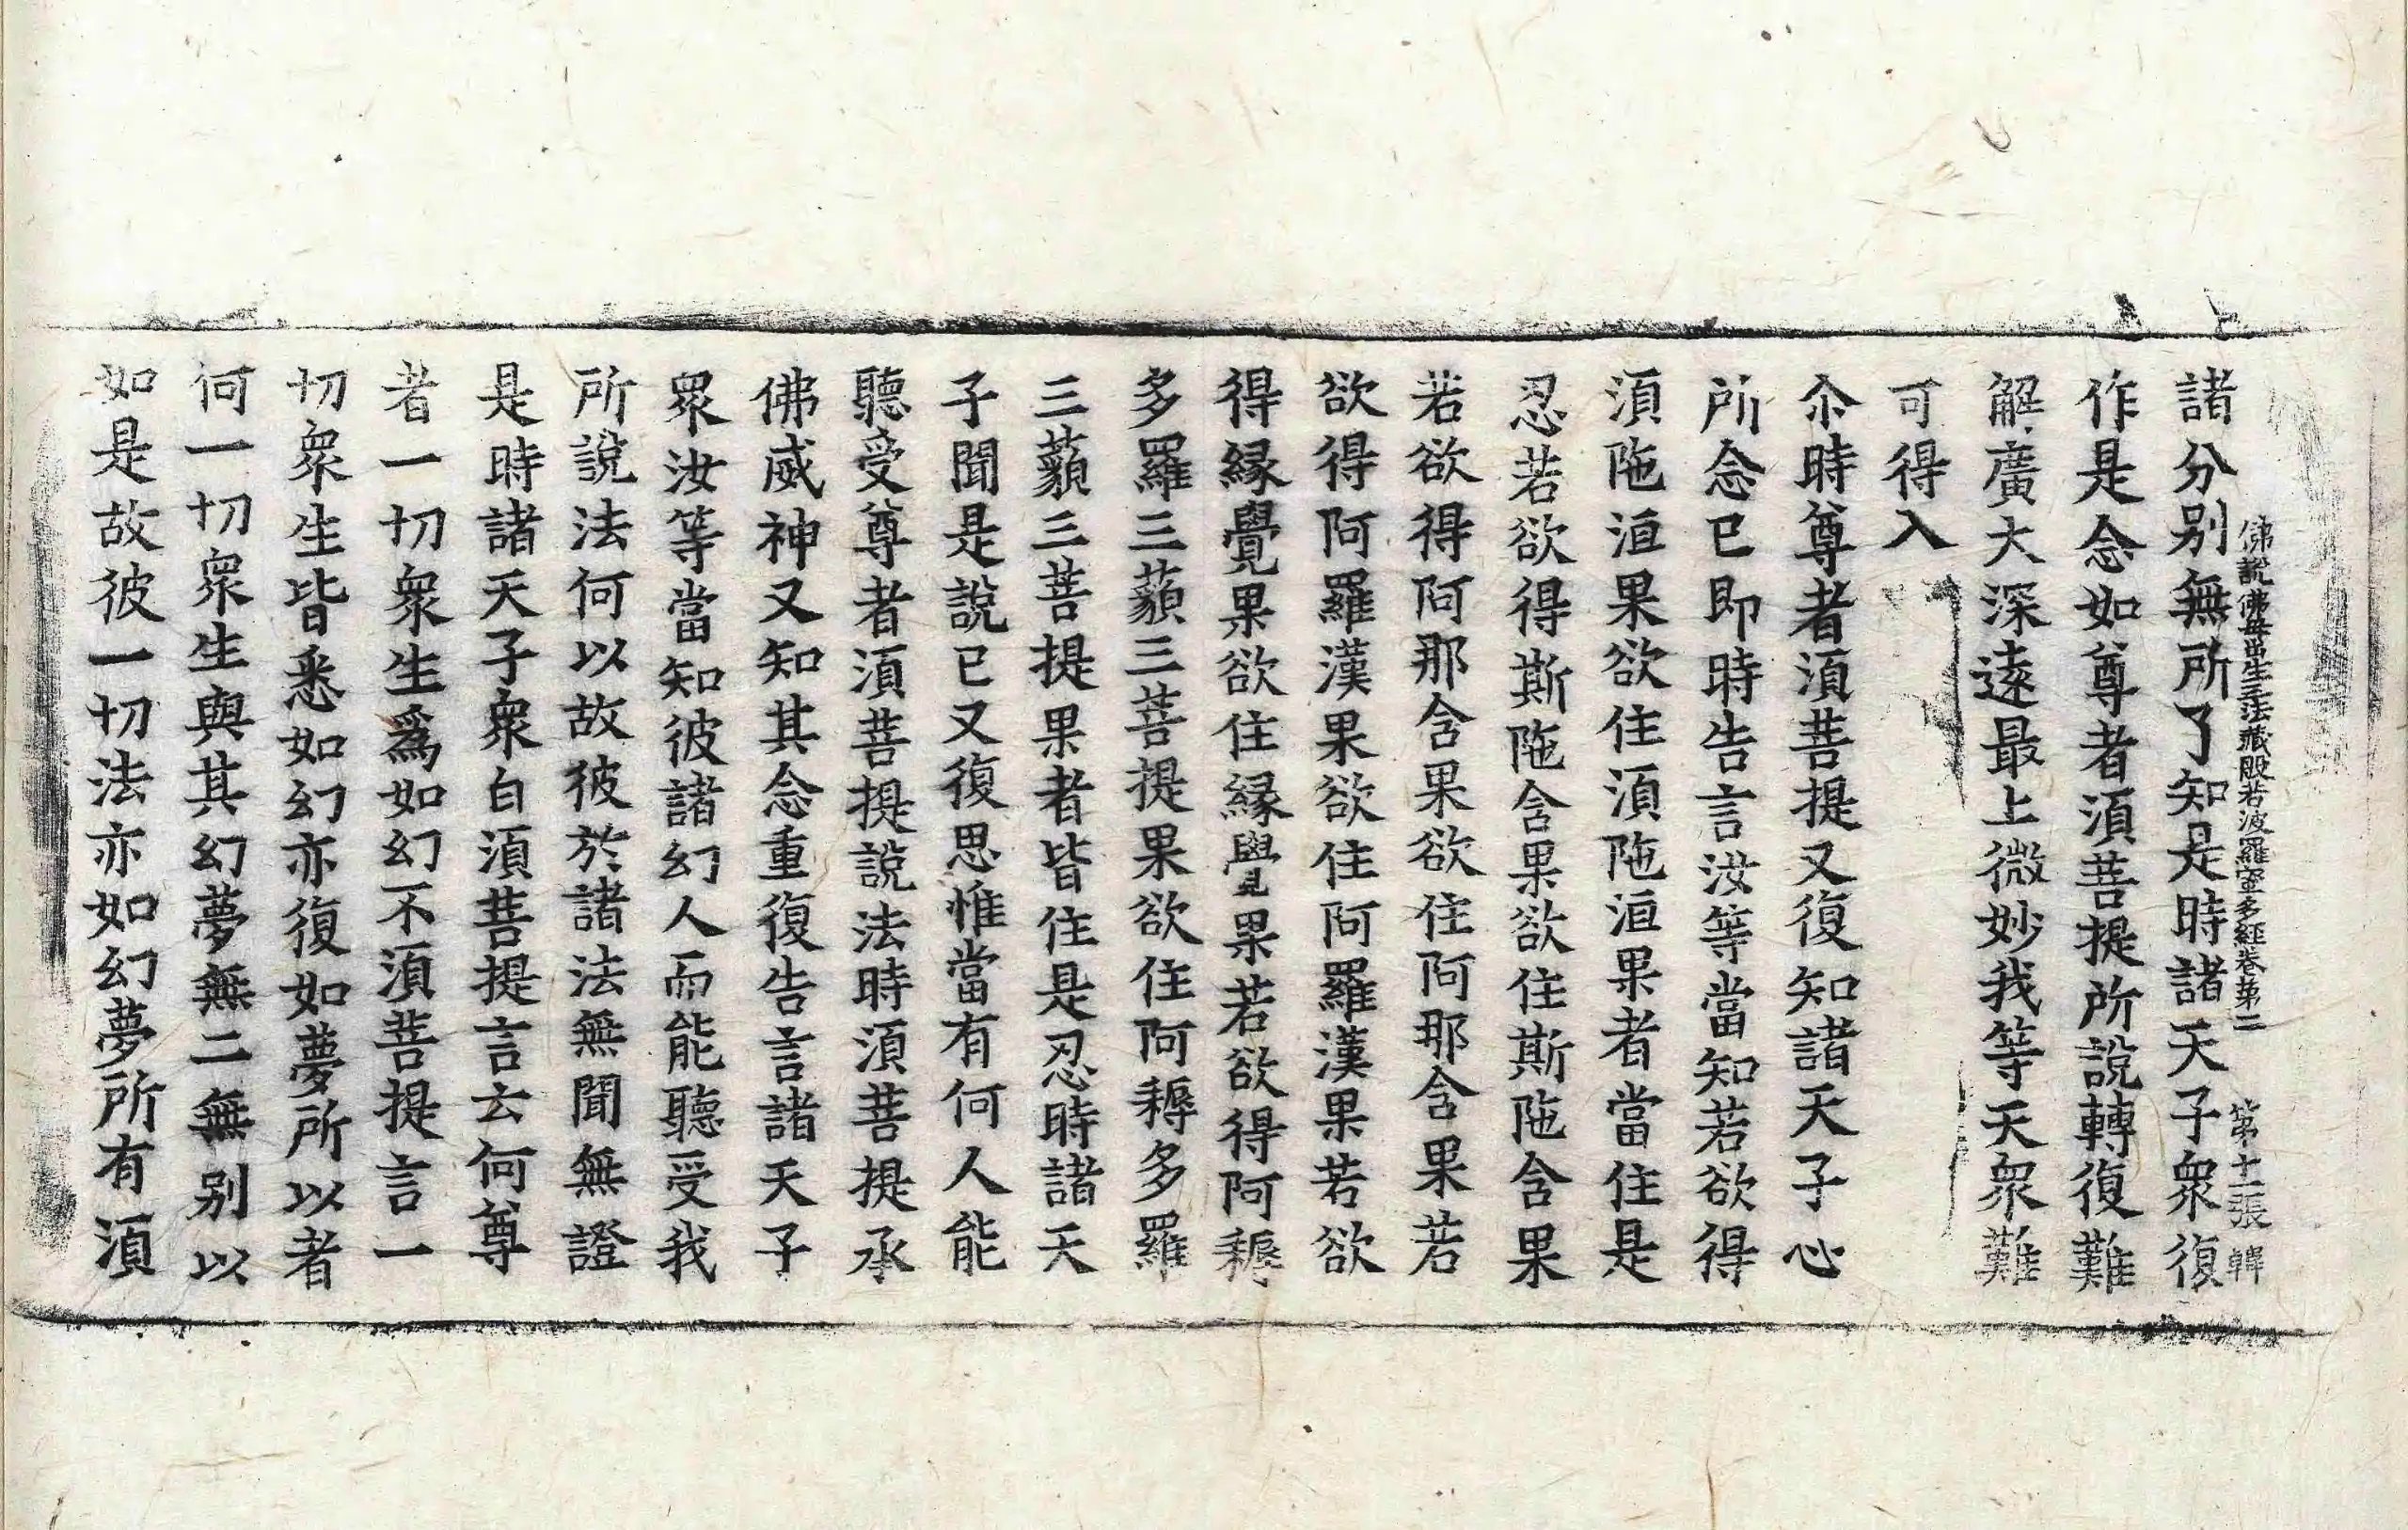 佛說佛母出生三法藏般若波羅蜜多經卷第二　第十一張　韓
諸分别無所了知是時諸天子衆復
作是念如尊者湏菩提所說轉復難
解廣大深遠最上微妙我等天衆難
可得入
尒時尊者湏菩提又復知諸天子心
所念已即時告言汝等當知若欲得
湏陁洹果欲住湏陁洹果者當住是
忍若欲得斯陁含果欲住斯陁含果
若欲得阿那含果欲住阿那含果若
欲得阿羅漢果欲住阿羅漢果若欲
得縁覺果欲住縁覺果若欲得阿耨
多羅三藐三菩提果欲住阿耨多羅
三藐三菩提果者皆住是忍時諸天
子聞是說已又復思惟當有何人能
聽受尊者湏菩提說法時湏菩提承
佛威神又知其念重復告言諸天子
衆汝等當知彼諸幻人而能聽受我
所說法何以故彼於諸法無聞無證
是時諸天子衆白湏菩提言云何尊
者一切衆生爲如幻不湏菩提言一
切衆生皆悉如幻亦復如夢所以者
何一切衆生與其幻夢無二無别以
如是故彼一切法亦如幻夢所有湏